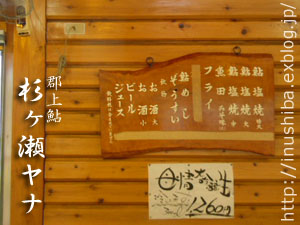 郡上鮎
杉ヶ瀬ヤナ
鮎塩焼 特大
鮎塩焼 大
鮎塩焼 中
魚田
フライ
鮎めし
ぞうすい
飲物
お酒 大
お酒 小
ビール
ジュース
1260g
http://inushiba.exblog.jp/